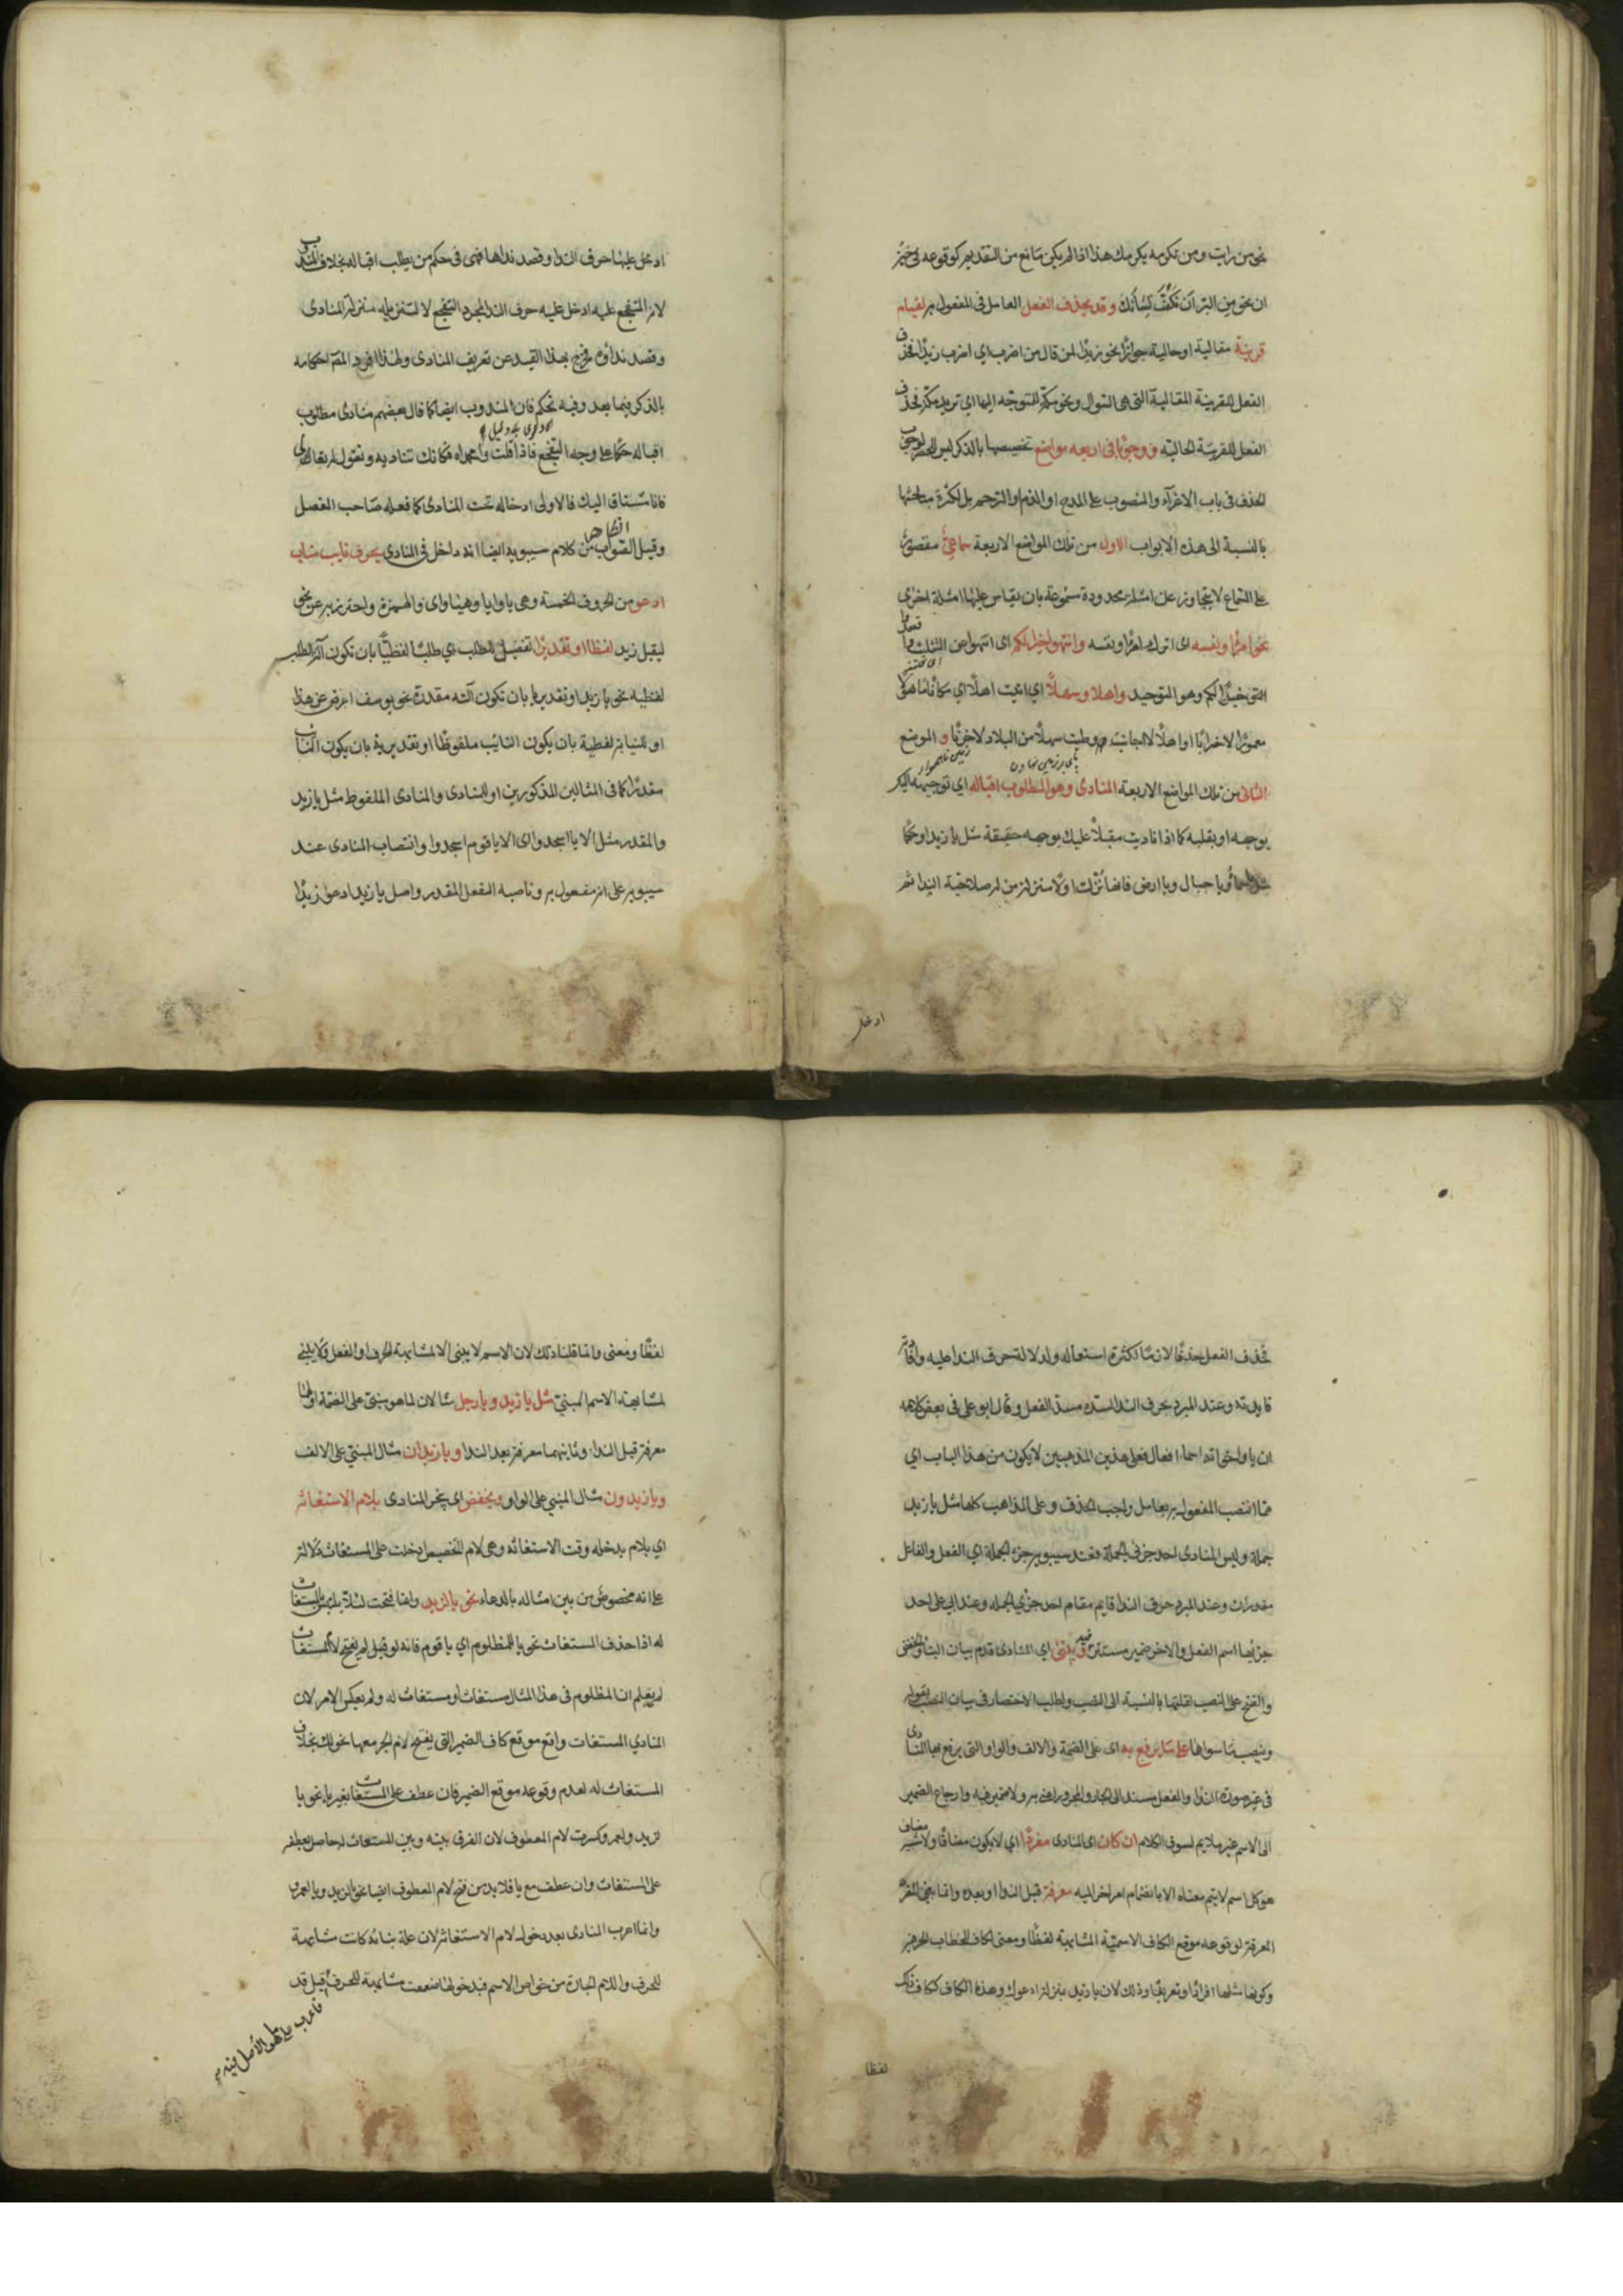 نحو من رايت ومن تكرمه يكرمك هذا اذا لم يكن مانع من التقديم كوقوعه فى حيز
ان نحو من البر ان تكف لسانك وقد يحذف الفعل العامل فى المفعول به لقيام
قرينة مقالية او حالية جوازا نحو زيدا لمن قال من اضرب اى اضرب زيدا فحذف
الفعل للقرينة المقالية التى هى السوال ونحو مكة للمتوجه اليها اى تريد مكة فحذف
الفعل للقرينة الحالية ووجوبا فى اربعه مواضع تخصيصها بالذكر ليس للحصر لوجوب
الحذف فى باب الاغرآء والمنصوب على المدح او الذم او الترحم بل لكثرة مباحثها
بالنسبة الى هذه الابواب الاول من تلك المواضع الاربعة سماعى مقصور
على السماع لا يتجاوز عن امثلة محدودة مسموعة بان يقاس عليها امثلة اخرى
نحو امرأ ونفسه اى اترك امرأ ونفسه وانتهوا خيرا لكم اى انتهوا عن التثليث
خيرا لكم وهو التوحيد واهلا وسهلا اى اتيت اهلا اى مكانا ماهولا
معمورا لا خرابا او اهلا لا اجانب ووطيت سهلا من البلاد لا حزنا و الموضع
پاى بر زمين نهادن
زمين ناهموار
الثانى من تلك المواضع الاربعة المنادى وهو المطلوب اقباله اى توجهه اليك
بوجهه او بقلبه كما اذا ناديت مقبلا عليك بوجهه حقيقة مثل يا زيد او حكما
مثل يا سماء ويا جبال ويا ارض فانها نزلت اولا منزلة من له صلاحية النداء ثم
ادخل
ادخل عليها حرف الندا وقصد نداها فهى فى حكم من يطلب اقباله بخلاف المندوب
لانه المتفجع عليه ادخل عليه حرف الندا لمجرد التفجع لا لتنزيله منزلة المنادى
وقصد ندائه فخرج بهذا القيد عن تعريف المنادى ولهذا افرد المص احكامه
بالذكر فيما بعد وفيه تحكم فان المندوب ايضا كما قال بعضهم منادى مطلوب
اقباله حكما على وجه التفجع فاذا قلت وامحمداه فكانك تناديه وتقول له تعال
فانا مشتاق اليك فالاولى ادخاله تحت المنادى كما فعله صاحب المفصل
الظاهر
وقيل الصواب من كلام سيبويه ايضا انه داخل فى المنادى بحرف نايب مناب
ادعو من الحروف الخمسة وهى يا وايا وهيا واى والهمزة واحترز به عن نحو
ليقبل زيد لفظا او تقديرا تفصيل للطلب اى طلبا لفظيا بان تكون آلة الطلب
لفظيه نحو يا زيد او تقديريا بان تكون آلته مقدرة نحو يوسف اعرض عن هذا
او للنيابة لفظية بان يكون النائب ملفوظا او تقديرية بان يكون النائب
مقدرا كما فى المثالين المذكورين او للمنادى والمنادى الملفوظ مثل يا زيد
والمقدر مثل الا يا اسجدوا اى الا يا قوم اسجدوا وانتصاب المنادى عند
سيبويه على انه مفعول به وناصبه الفعل المقدر واصل يا زيد ادعو زيدا
فحذف الفعل حذفا لازما لكثرة استعماله ولدلالة حرف الندا عليه وافادته
فايدته وعند المبرد بحرف الندا لسده مسد الفعل وقال ابو على فى بعض كلامه
ان يا واخواته اسماء افعال فعلى هذين المذهبين لا يكون من هذا الباب اى
مما انتصب المفعول به بعامل واجب الحذف وعلى المذاهب كلها مثل يا زيد
جملة وليس المنادى احد جزئى الجملة فعند سيبويه جزء الجملة اى الفعل والفاعل
مقدران وعند المبرد حرف الندا قايم مقام احد جزئى الجملة وعند ابى على احد
جزئيها اسم الفعل والاخر ضمير مستتر فيه ويبنى اى المنادى قدم بيان البناء والخفض
والفتح على النصب لقلتها بالنسبة الى النصب ولطلب الاختصار فى بيان النصب بقوله
وينصب ما سواهما على ما يرفع به اى على الضمة والالف والواو التى يرفع بها المنادى
فى غير صورة الندا والفعل مسند الى الجار والمجرور اعنى به ولا ضمير فيه وارجاع الضمير
الى الاسم غير ملايم لسوق الكلام ان كان اى المنادى مفردا اى لا يكون مضافا ولا شبه مضاف
هو كل اسم لا يتم معناه الا بانضمام امر اخر اليه معرفة قبل الندا او بعده وانما بنى المفرد
المعرفة لوقوعه موقع الكاف الاسمية المشابهة لفظا ومعنى لكاف الخطاب الحرفية
وكونه مثلها افرادا وتعريفا وذلك لان يا زيد بمنزلة ادعوك وهذه الكاف ككاف ذلك
لفظا
لفظا ومعنى وانما قلنا ذلك لان الاسم لا يبنى الا لمشابهة الحرف او الفعل ولا يبنى
لمشابهة الاسم المبنى مثل يا زيد ويا رجل مثالان لما هو مبنى على الضمة اولهما
معرفة قبل الندا وثانيهما معرفة بعد الندا ويا زيدان مثال المبنى على الالف
ويا زيدون مثال المبنى على الواو ويخفض اى يجر المنادى بلام الاستغاثة
اى بلام يدخله وقت الاستغاثه وهى لام التخصيص ادخلت على المستغاث دلالة
على انه مخصوص من بين امثاله بالدعاء نحو يا لزيد وانما فتحت لئلا يلتبس بالمستغاث
له اذا حذف المستغاث نحو يا للمظلوم اى يا قوم فانه لو لم يفتح لام المستغاث
لم يعلم ان المظلوم فى هذا المثال مستغاث او مستغاث له ولم يعكس الامر لان
المنادى المستغاث واقع موقع كاف الضمير التى يفتح لام الجر معها نحو لك بخلاف
المستغاث له لعدم وقوعه موقع الضمير فان عطف على المستغاث بغير يا نحو يا
لزيد ولعمر وكسرت لام المعطوف لان الفرق بينه وبين المستغاث له حاصل بعطفه
على المستغاث وان عطف مع يا فلا بد من فتح لام المعطوف ايضا نحو يا لزيد ويا لعمرو
وانما اعرب المنادى بعد دخول لام الاستغاثة لان علة بنائه كانت مشابهة
للحرف واللام الجارة من خواص الاسم فبدخولها ضعفت مشابهة للحرف وقيل قد
فاعرب على ما هو الاصل فيه